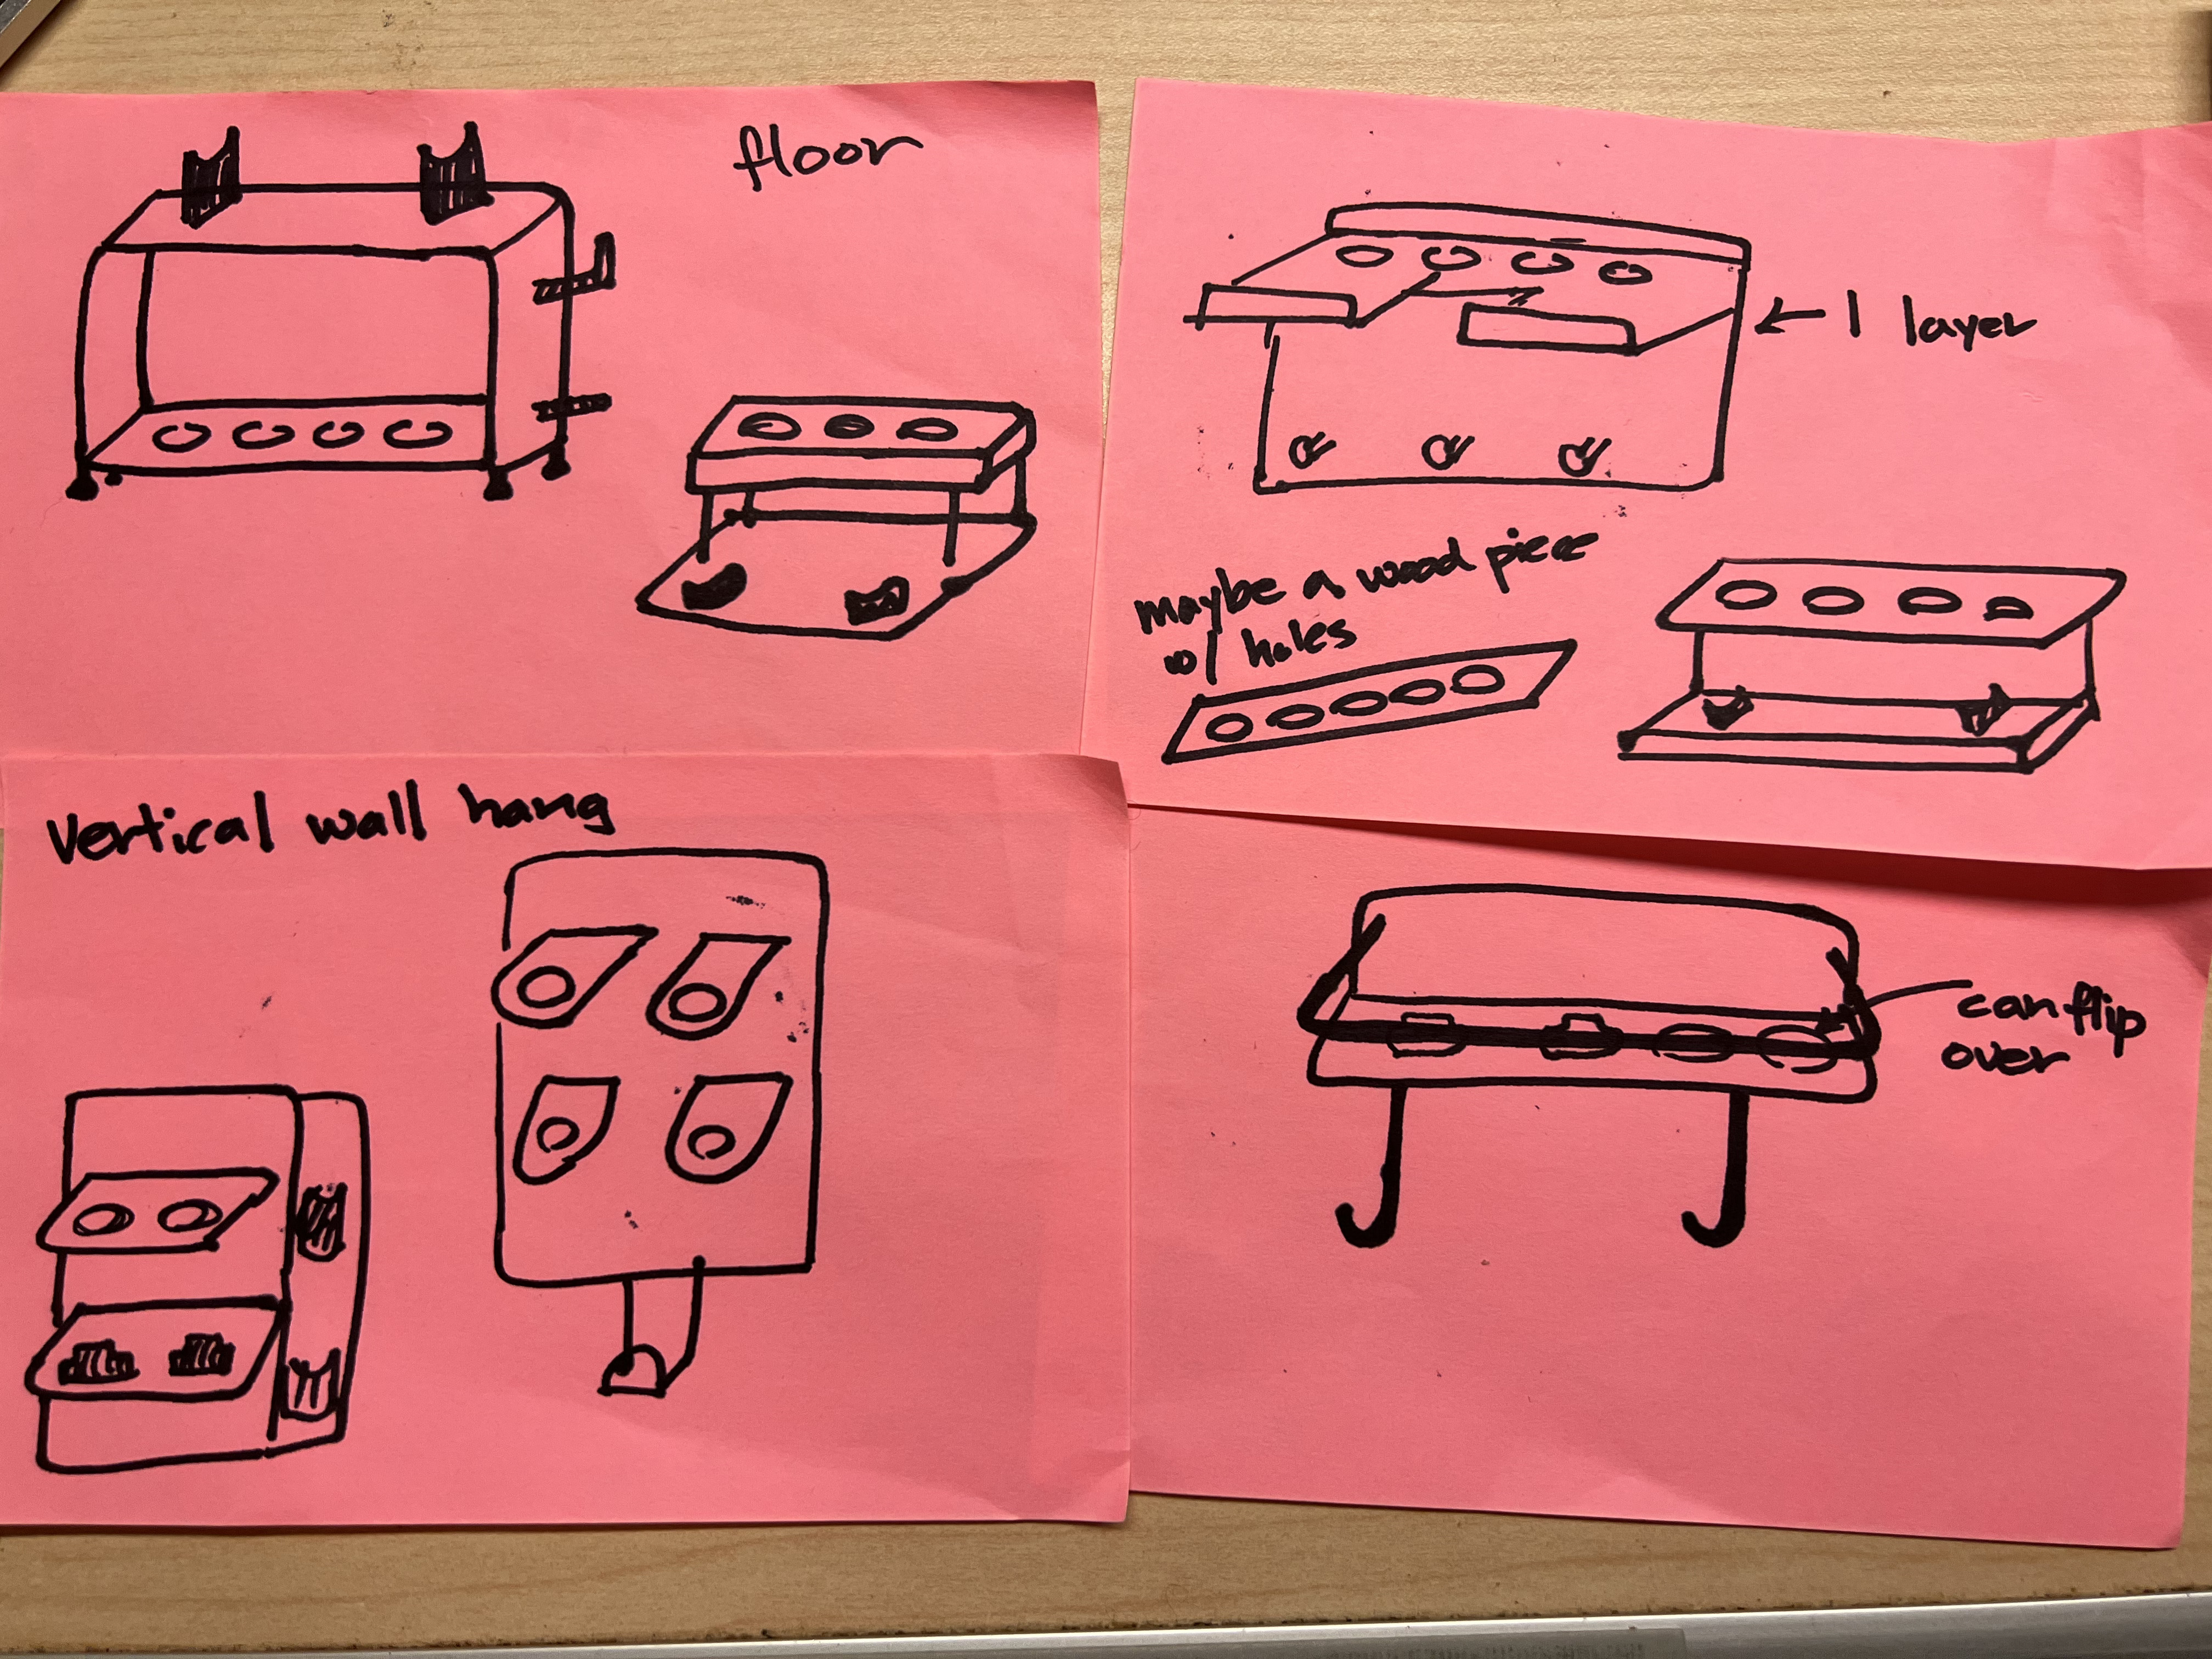 floor
← 1 layer
maybe a wood piece
w/ holes
Vertical wall hang
can flip
over